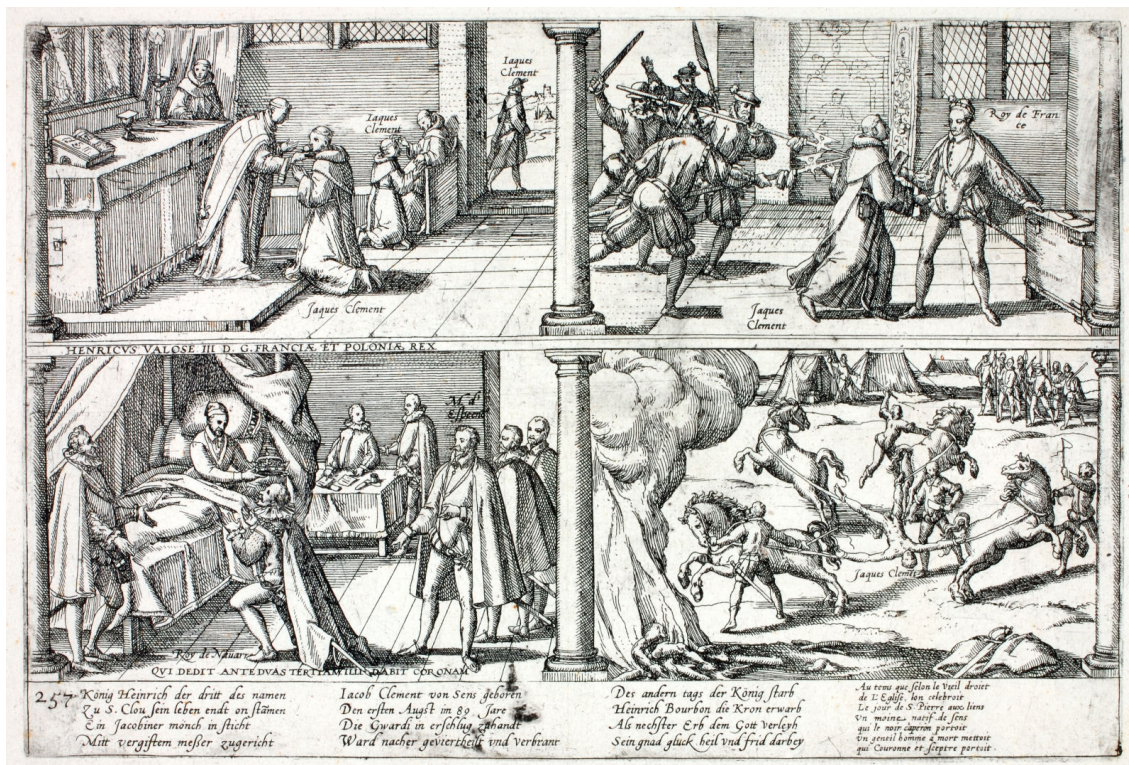 Iaques
Clement
Iaques
Clement
Jaques Clement
Roy de Fran
ce
Jaques
Clement
HENRICVS VALOSE III D. G. FRANCIÆ ET POLONIÆ REX
Mr d'
Roy de Nauare
QVI DEDIT ANTE DVAS TERTIAM ILLI DABIT CORONAM
Jaques Clemēt
257
König Heinrich der dritt des namen
Zu S. Clou sein leben endt on stāmen
Ein Jacobiner mönch in sticht
Mitt vergiftem meßer zugericht
Iacob Clement von Sens geboren
Den ersten Augst im 89 Jare
Die Gwardi in erschlug zuhandt
Ward nacher geviertheilt vnd verbrant
Des andern tags der König starb
Heinrich Bourbon die Kron erwarb
Als nechster Erb dem Gott verleyh
Sein gnad glück heil vnd frid darbey
Au tems que selon le Vieil droict
de L'Eglise, lon celebroit
Le jour de S. Pierre aux liens
Vn moine natif de sens
qui le noir caperon portoit
Vn gentil homme a mort mettoit
qui Couronne et sceptre portoit.